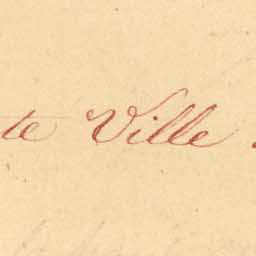 te Ville.